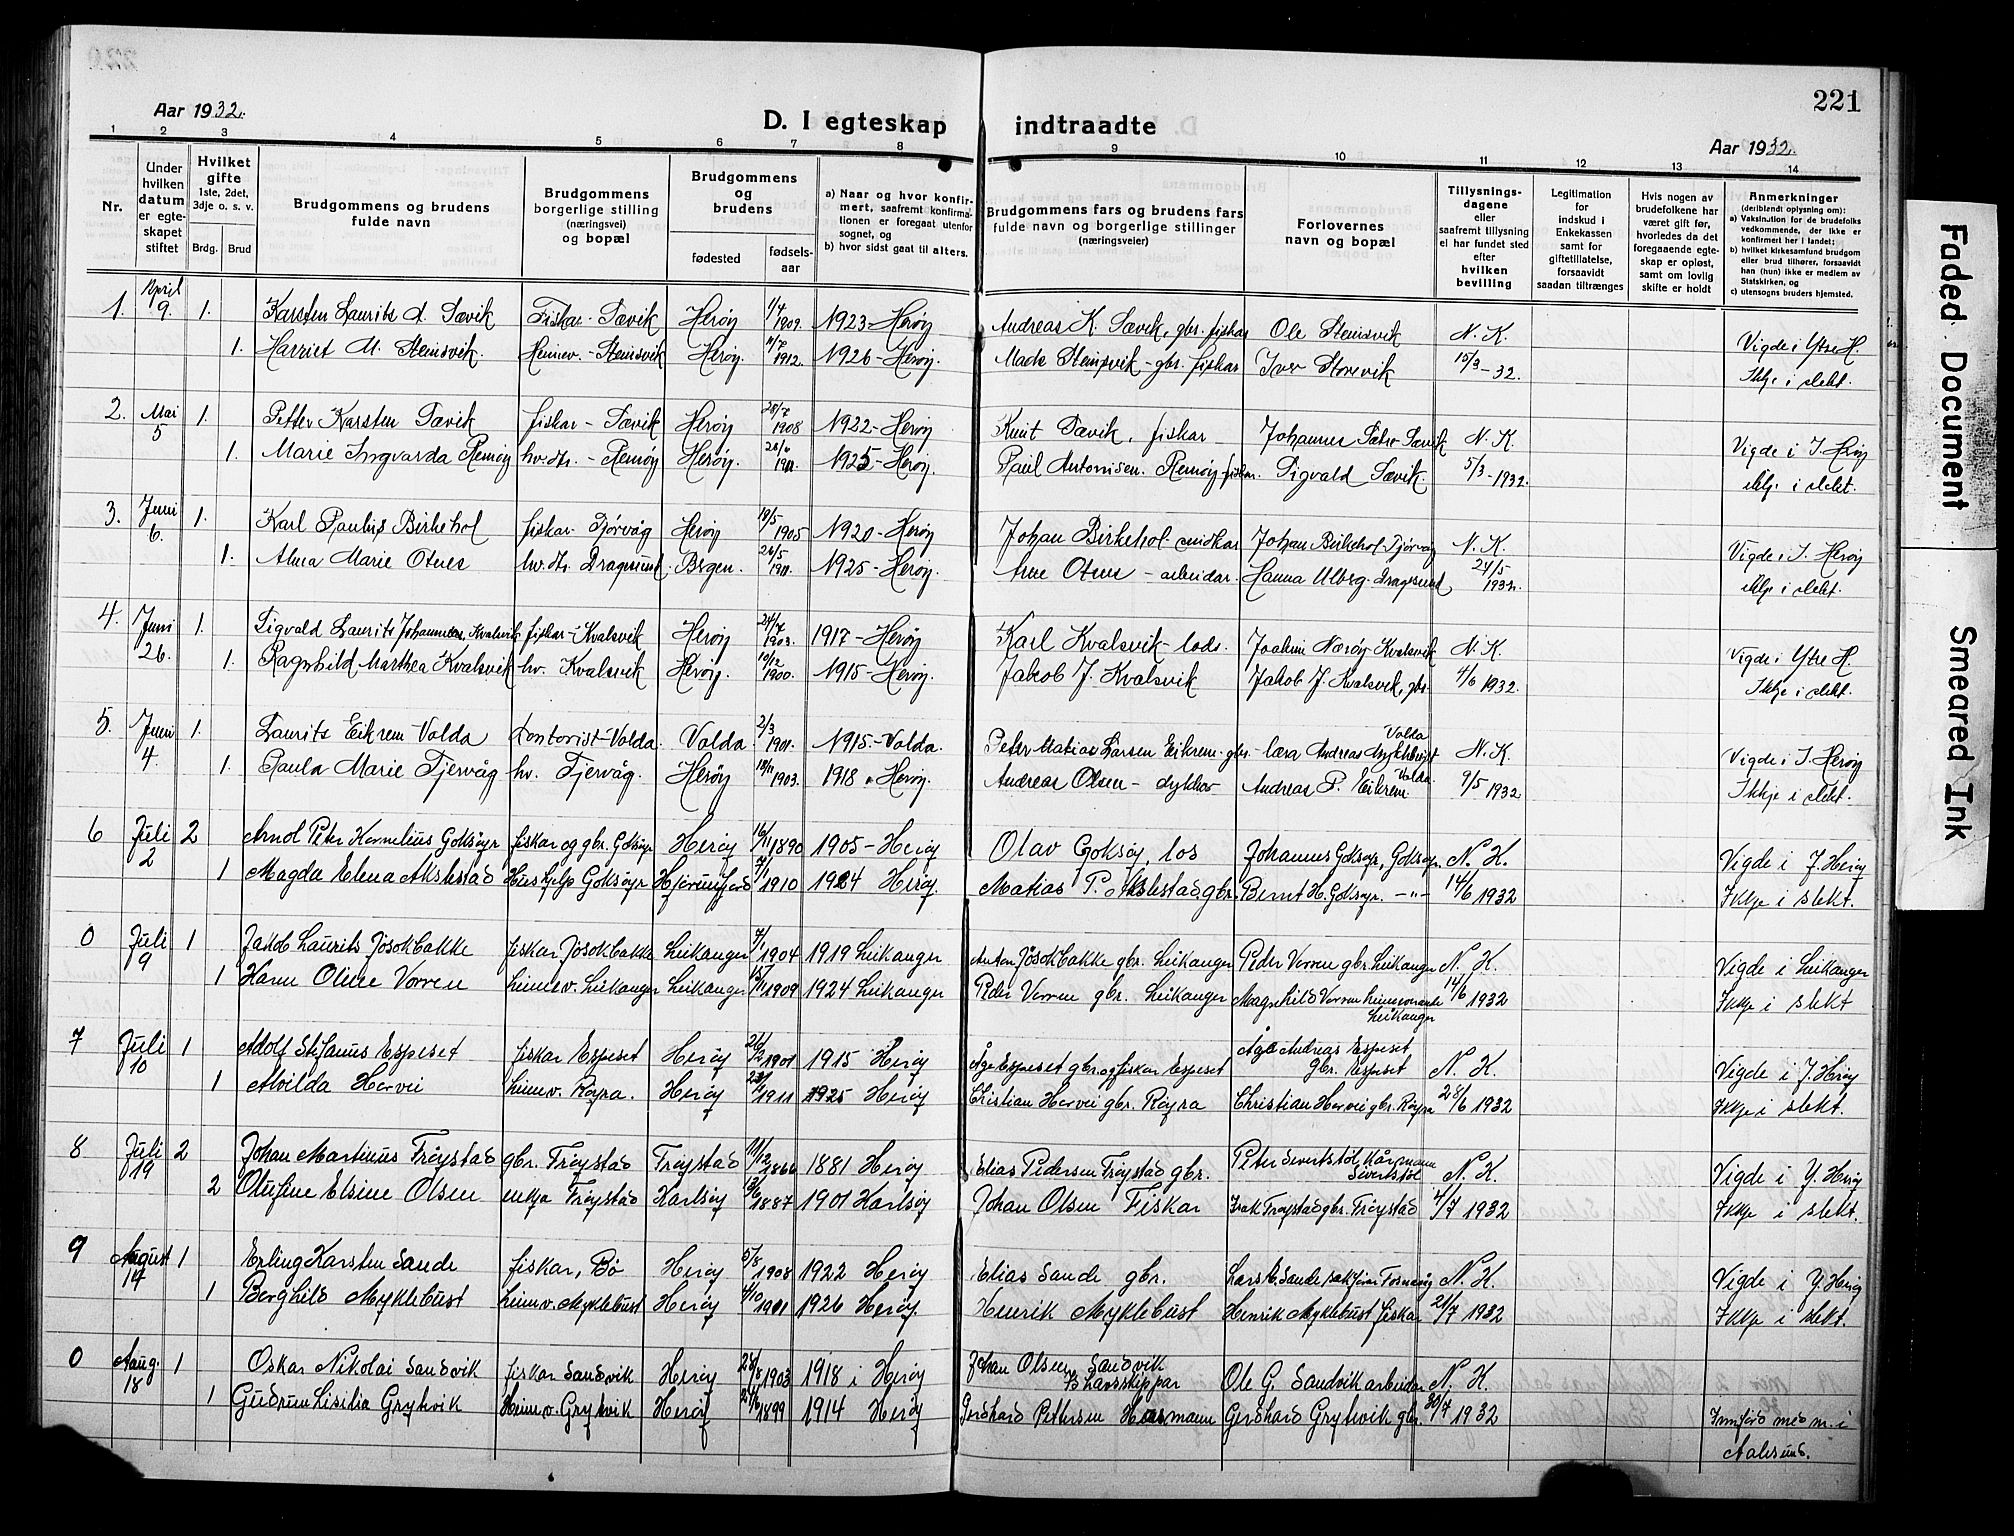 221
Aar 1932.
D. I egteskap indtraadte
Aar 1932.
1 2 3 4 5 6 7 8 9 10 11 12 13 14
Nr.
Under hvilken datum er egteskapet stiftet
Hvilket gifte 1ste, 2det, 3dje o. s. v.
Brdg. Brud
Brudgommens og brudens fulde navn
Brudgommens borgerlige stilling (næringsvei) og bopæl
Brudgommens og brudens
fødested
fødselsaar
a) Naar og hvor konfirmert, saafremt konfirmationen er foregaat utenfor sognet, og
b) hvor sidst gaat til alters.
Brudgommens fars og brudens fars fulde navn og borgerlige stillinger (næringsveier)
Forlovernes navn og bopæl
Tillysningsdagene eller saafremt tillysning ei har fundet sted efter hvilken bevilling
Legitimation for indskud i Enkekassen samt for giftetillatelse, forsaavidt saadan tiltrænges
Hvis nogen av brudefolkene har været gift før, hvorledes da det foregaaende egteskap er opløst, samt om lovlig skifte er holdt
Anmerkninger (deriblendt oplysning om):
a) Vaksination for de brudefolks vedkommende, der ikke er konfirmert her i landet;
b) hvilket kirkesamfund brudgom eller brud tilhører, forsaavidt han (hun) ikke er medlem av Statskirken, og
c) utensogns bruders hjemsted.
1. April 9. 1. Karsten Laurits A. Sævik Fiskar - Sævik Herøy 1/4 1909. 1923 - Herøy Andreas K. Sævik, gbr. fiskar Ole Stemsvik N. K. Vigde i Ytre H.
1. Harriet M. Stemsvik. Heimev. - Stemsvik Herøy. 11/7 1912. 1926 - Herøy. Mads Stemsvik - gbr. fiskar Iver Storevik 15/3 - 32. Ikkje i slekt.
2. Mai 5 1. Petter Karsten Sævik fiskar - Sævik Herøy 28/7 1908 1922 - Herøy Knut Sævik, fiskar Johannes Sævik N. K. Vigde i I. Herøy
1. Marie Ingvarda Remøy hv.dtr. - Remøy Herøy. 1911. 1925 - Herøy. Paul Antonisen Remøy - fiskar. Sigvald Sævik. 5/3 - 1932. ikkje i slekt.
3. Juni 6. 1. Karl Paulus Birkehol fiskar Tjørvåg Herøy 19/5 1905 1920 - Herøy Johan Birkehol smidkar Johan Birkehol Tjørvåg N. K. Vigde i I. Herøy
1. Alma Marie Otnes hv.dtr. Dragsund. Bergen. 26/5 1911. 1925 - Herøy. Arne Otnes - arbeidar Hanna Ulberg - Dragsund 24/5 1932. ikkje i slekt.
4. Juni 26. 1. Sigvald Laurits Johannes Kvalsvik fiskar - Kvalsvik Herøy 24/7 1903. 1917 - Herøy Karl Kvalsvik - lods. Joakim Nærøy Kvalsvik N. K. Vigde i Ytre H.
1. Ragnhild Marthea Kvalsvik hv. Kvalsvik Herøy. 10/12 1900. 1915 - Herøy. Jakob J. Kvalsvik Jakob J. Kvalsvik, gbr. 4/6 1932. Ikkje i slekt.
5. Juni 4. 1. Laurits Eikrem Volda Kontorist - Volda. Volda. 2/3 1901. 1915. - Volda. Peter Matias Larsen Eikrem - gbr. - Lærar Andreas Myklebust Volda N. K. Vigde i I. Herøy
1. Paula Marie Tjervåg hv. Tjervåg. Herøy 18/11 1903. 1918 - Herøy. Andreas Olsen - dykkar Andreas P. Eikrem Volda 9/5 1932 Ikkje i slekt.
6 Juli 2 2 Arnol Peter Kornelius Goksøyr fiskar og gbr. Goksøyr Herøy 16/11 1890 1905 - Herøy Olav Goksøy, los Johannes Goksøyr, Goksøyr. N. K. Vigde i I. Herøy
1 Magda Elena Akslestad Hushjelp Goksøyr Hjørundfjord 7/1 1910 1924 Herøy. Matias P. Akslestad gbr. Bernt H. Goksøyr. -"- 14/6 1932 Ikkje i slekt.
0 Juli 9 1 Jakob Laurits Jøsokbakke fiskar Jøsokbakke Leikanger 7/1 1904 1919 Leikanger Anton Jøsokbakke gbr. Leikanger Peder Vorren gbr. Leikanger N. K. Vigde i Leikanger
1 Karen Oline Vorren heimev. Leikanger Leikanger 1909 1924 Leikanger Peder Vorren gbr. Leikanger Magnhild Vorren heimeverande Leikanger 14/6 1932 Ikkje i slekt
7 Juli 10 1 Adolf Stefanus Espeset fiskar Espeset Herøy 26/2 1901 1915 Herøy Åge Espeset gbr. og fiskar Espeset Åge Andreas Espeset Gbr. Espeset N. K. Vigde i I. Herøy
1 Alvilda Hervei heimev. Røyra. Herøy 1911 1925 Herøy Christian Hervei gbr. Røyra Christian Hervei gbr. Røyra 28/6 1932 Ikkje i slekt.
8 Juli 19 2 Johan Martinus Frøystad gbr. Frøystad Frøystad 11/12 1866 1881 Herøy Elias Pedersen Frøystad gbr. Peter Sivertstøl Kårmann Sivertstøl N. K. Vigde i Y. Herøy
2 Olufine Elsine Olsen enkja Frøystad Karlsøy 13/6 1887 1901 Karlsøy Johan Olsen Fiskar Isak Frøystad gbr. Frøystad 4/7 1932 Ikkje i slekt.
9 August 14 1 Erling Karsten Sande fiskar, Bø Herøy 5/8 1908 1922 Herøy Elias Sande gbr. Lars E. Sande Fosnavåg N. K. Vigde i Y. Herøy
1 Borghild Myklebust heimev. Myklebust Herøy 1911 1926 Herøy Henrik Myklebust Henrik Myklebust fiskar 21/7 1932 Ikkje i slekt.
0 Aug. 18 1 Oskar Nikolai Sandvik fiskar Sandvik Herøy 28/8 1903 1918 i Herøy Johan Olsen Sandvik Landsskippar Ole G. Sandvik arbeidar N. K.
1 Gudrun Lisilia Grytvik Heimev. Grytvik Herøy 1899 1914 Herøy Gerdhard Pettersen Hosmann Gerdhard Grytvik gbr. 30/7 1932 Innførd med m. i Aalesund.
Faded Document
Smeared Ink